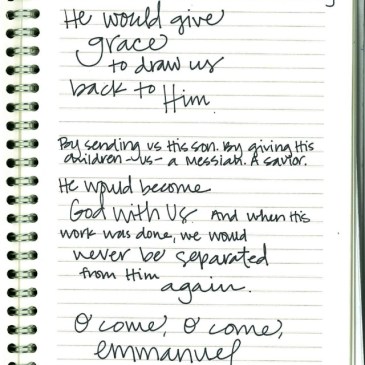 He would give
grace
to draw us
back to Him
By sending us His son. By giving His
children - us - a Messiah. A savior.
He would become
God with Us. And when His
work was done, we would
never be separated
from Him
again.
O come, O come,
emmanuel